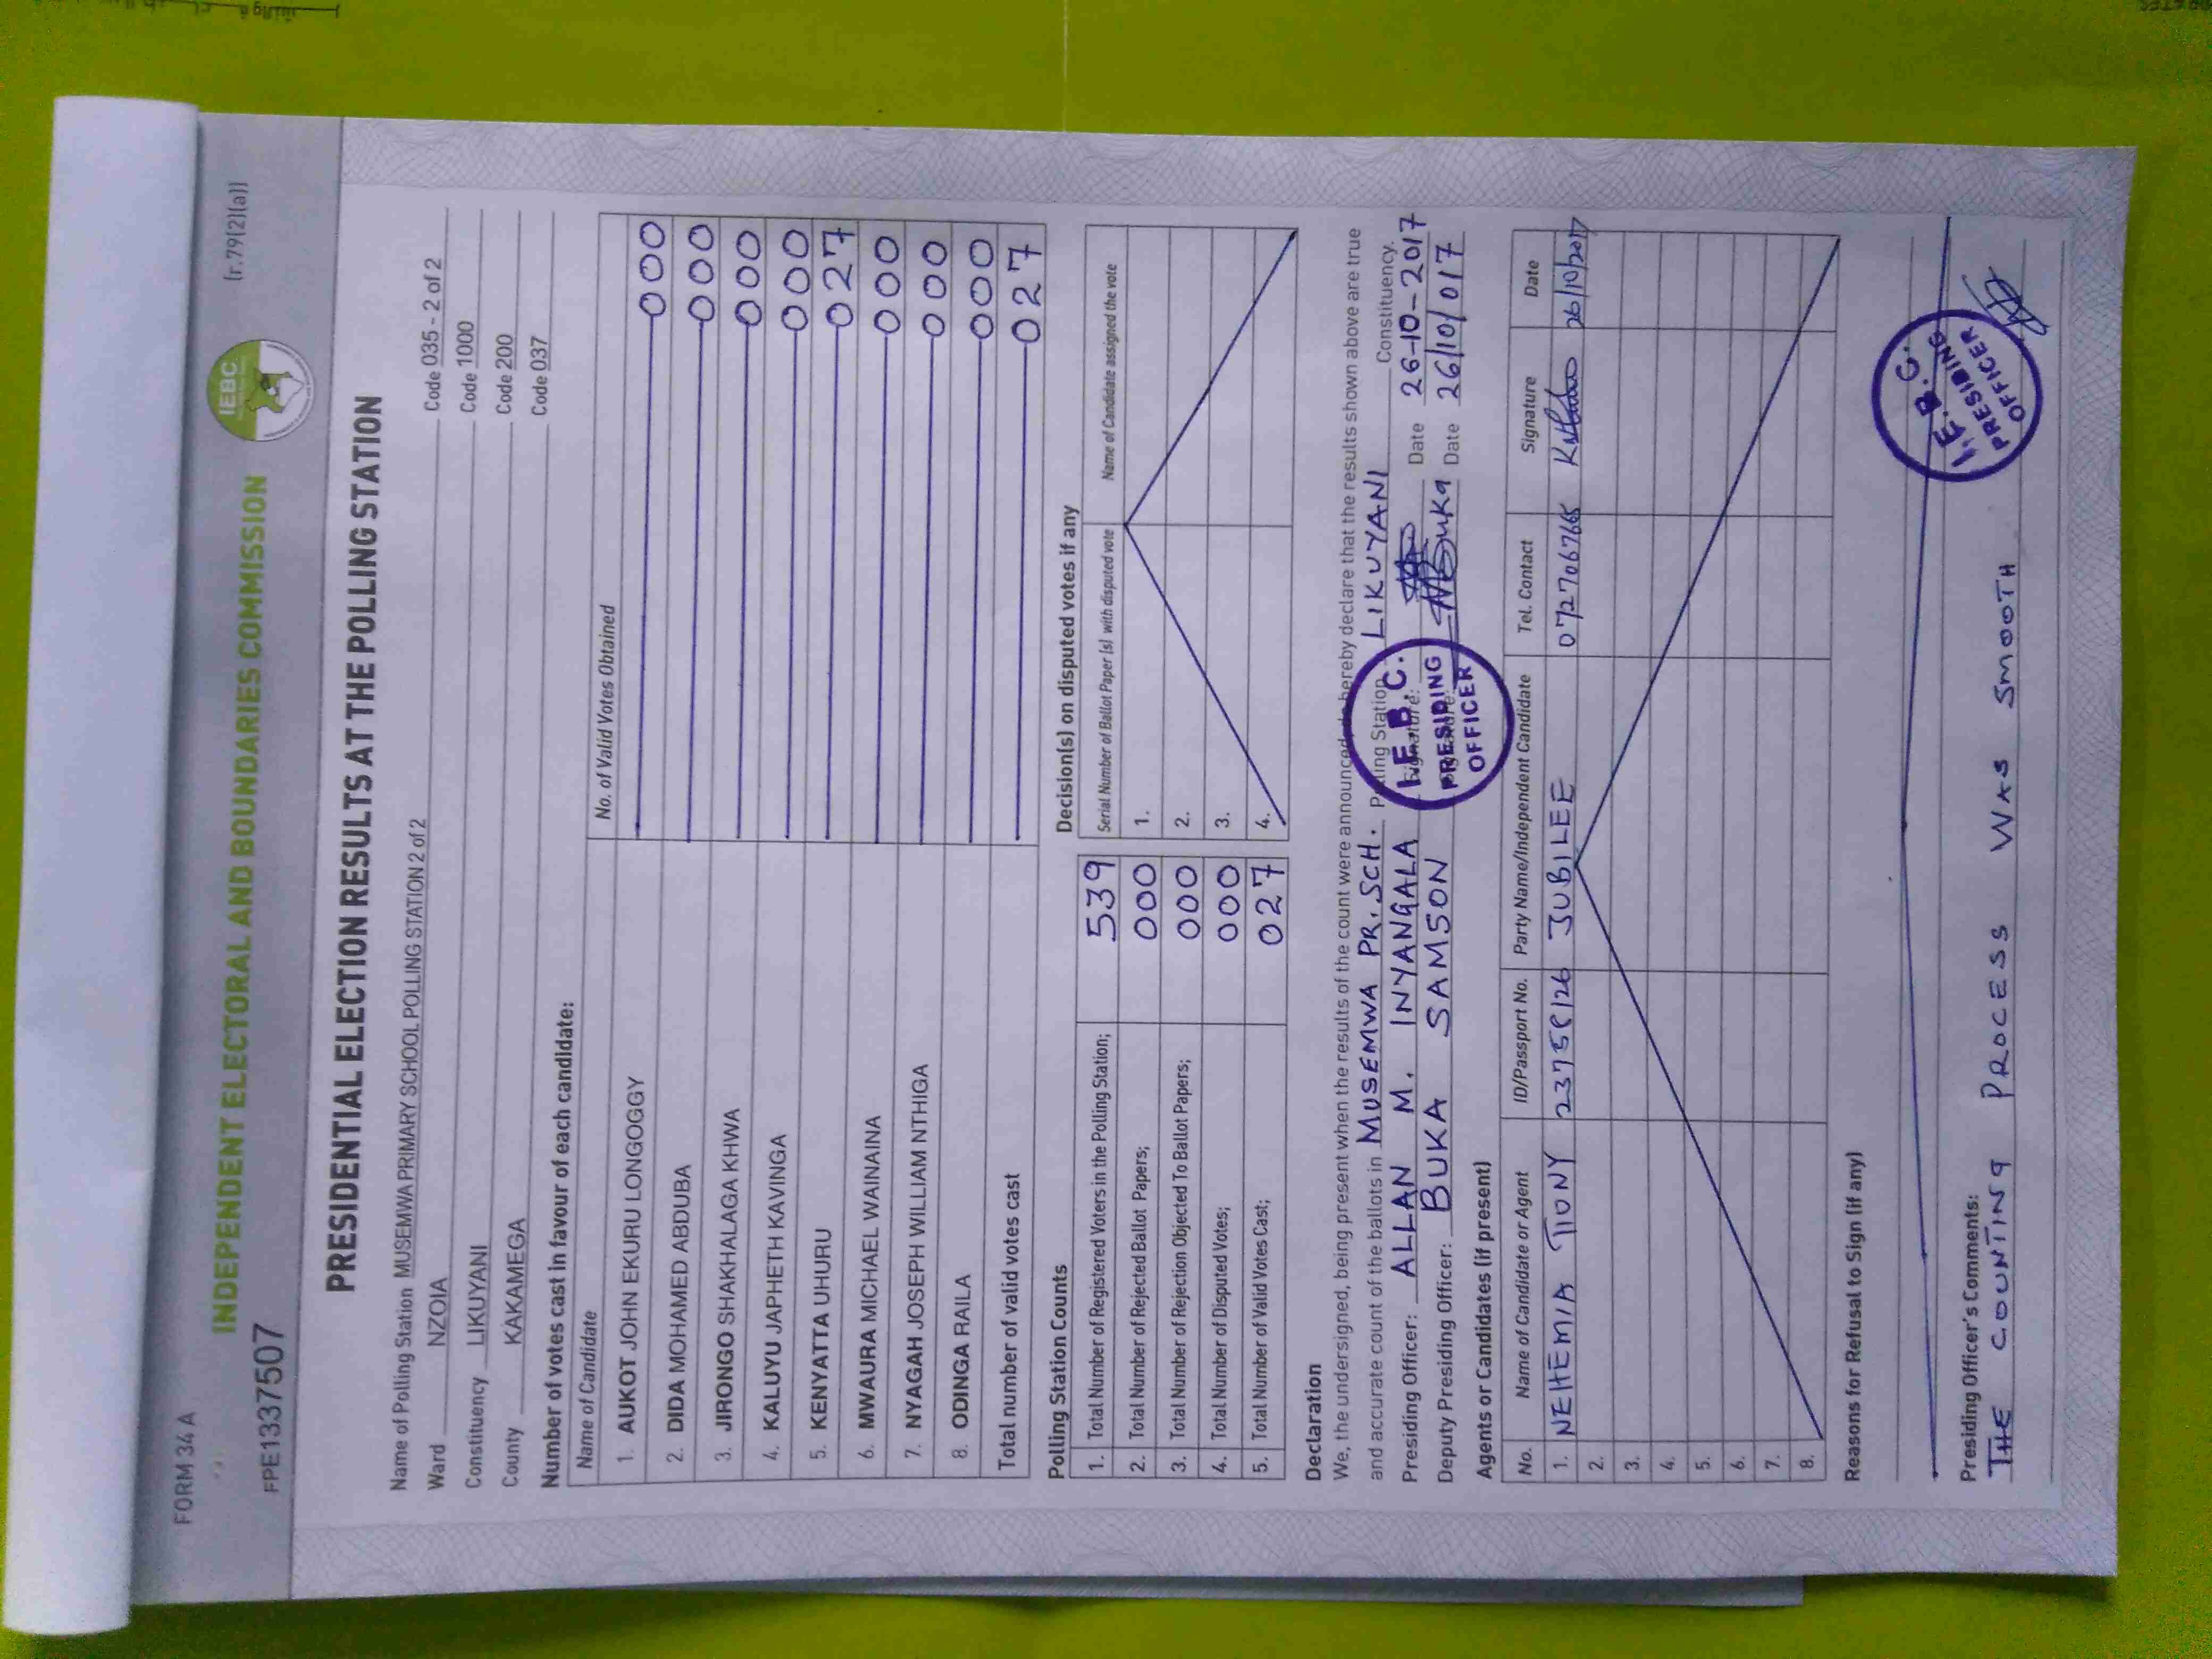 FORM 34 A
(r.79(2)(a))
IEBC
INDEPENDENT ELECTORAL AND BOUNDARIES COMMISSION
FPE1337507
PRESIDENTIAL ELECTION RESULTS AT THE POLLING STATION
Name of Polling Station MUSEMWA PRIMARY SCHOOL POLLING STATION 2 of 2 Code 035 - 2 of 2
Ward NZOIA Code 1000
Constituency LIKUYANI Code 200
County KAKAMEGA Code 037
Number of votes cast in favour of each candidate:
Name of Candidate No. of Valid Votes Obtained
1. AUKOT JOHN EKURU LONGOGGY 000
2. DIDA MOHAMED ABDUBA 000
3. JIRONGO SHAKHALAGA KHWA 000
4. KALUYU JAPHETH KAVINGA 000
5. KENYATTA UHURU 027
6. MWAURA MICHAEL WAINAINA 000
7. NYAGAH JOSEPH WILLIAM NTHIGA 000
8. ODINGA RAILA 000
Total number of valid votes cast 027
Polling Station Counts
1. Total Number of Registered Voters in the Polling Station; 539
2. Total Number of Rejected Ballot Papers; 000
3. Total Number of Rejection Objected To Ballot Papers; 000
4. Total Number of Disputed Votes; 000
5. Total Number of Valid Votes Cast; 027
Decision(s) on disputed votes if any
Serial Number of Ballot Paper (s) with disputed vote Name of Candidate assigned the vote
1.
2.
3.
4.
Declaration
We, the undersigned, being present when the results of the count were announced, do hereby declare that the results shown above are true
and accurate count of the ballots in MUSEMWA PR. SCH. Polling Station LIKUYANI Constituency.
Presiding Officer: ALLAN M. INYANGALA Signature: Date 26-10-2017
Deputy Presiding Officer: BUKA SAMSON Signature: Buka Date 26/10/017
I.E.B.C. PRESIDING OFFICER
Agents or Candidates (if present)
No. Name of Candidate or Agent ID/Passport No. Party Name/Independent Candidate Tel. Contact Signature Date
1. NEHEMIA TIONY 23758126 JUBILEE 0727706766 26/10/2017
2.
3.
4.
5.
6.
7.
8.
Reasons for Refusal to Sign (if any)
I.E.B.C. PRESIDING OFFICER
Presiding Officer's Comments:
THE COUNTING PROCESS WAS SMOOTH